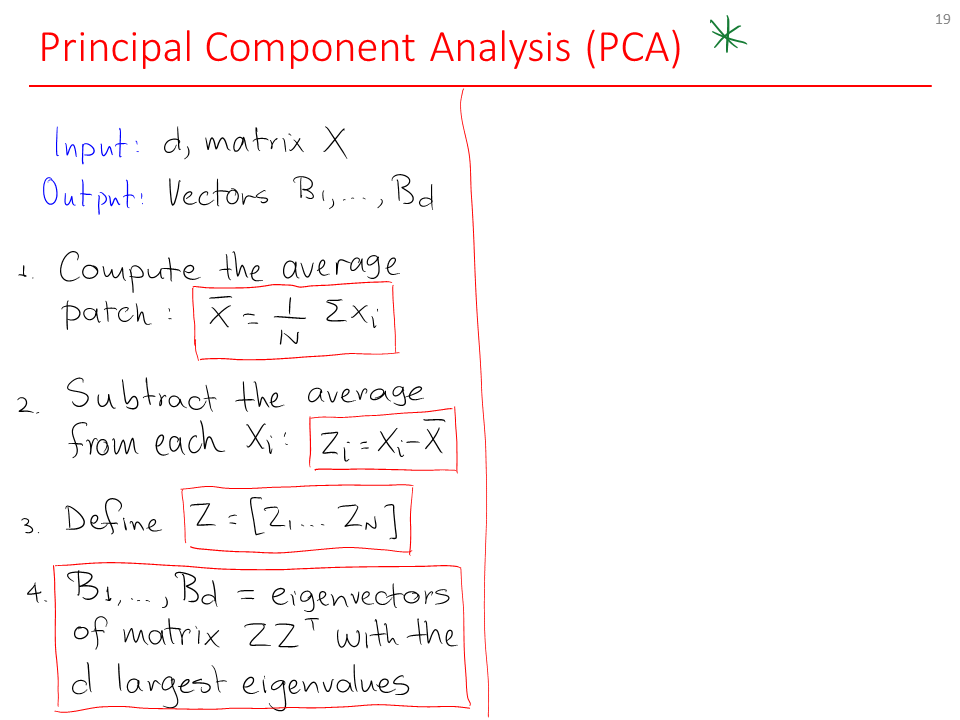 19
Principal Component Analysis (PCA) *
Input: d, matrix X
Output: Vectors B₁,...,B_d
1. Compute the average
patch: X̄ = 1/N Σxᵢ
2. Subtract the average
from each Xᵢ: Zᵢ = Xᵢ - X̄
3. Define Z = [Z₁... Z_N]
4. B₁,...,B_d = eigenvectors
of matrix ZZᵀ with the
d largest eigenvalues